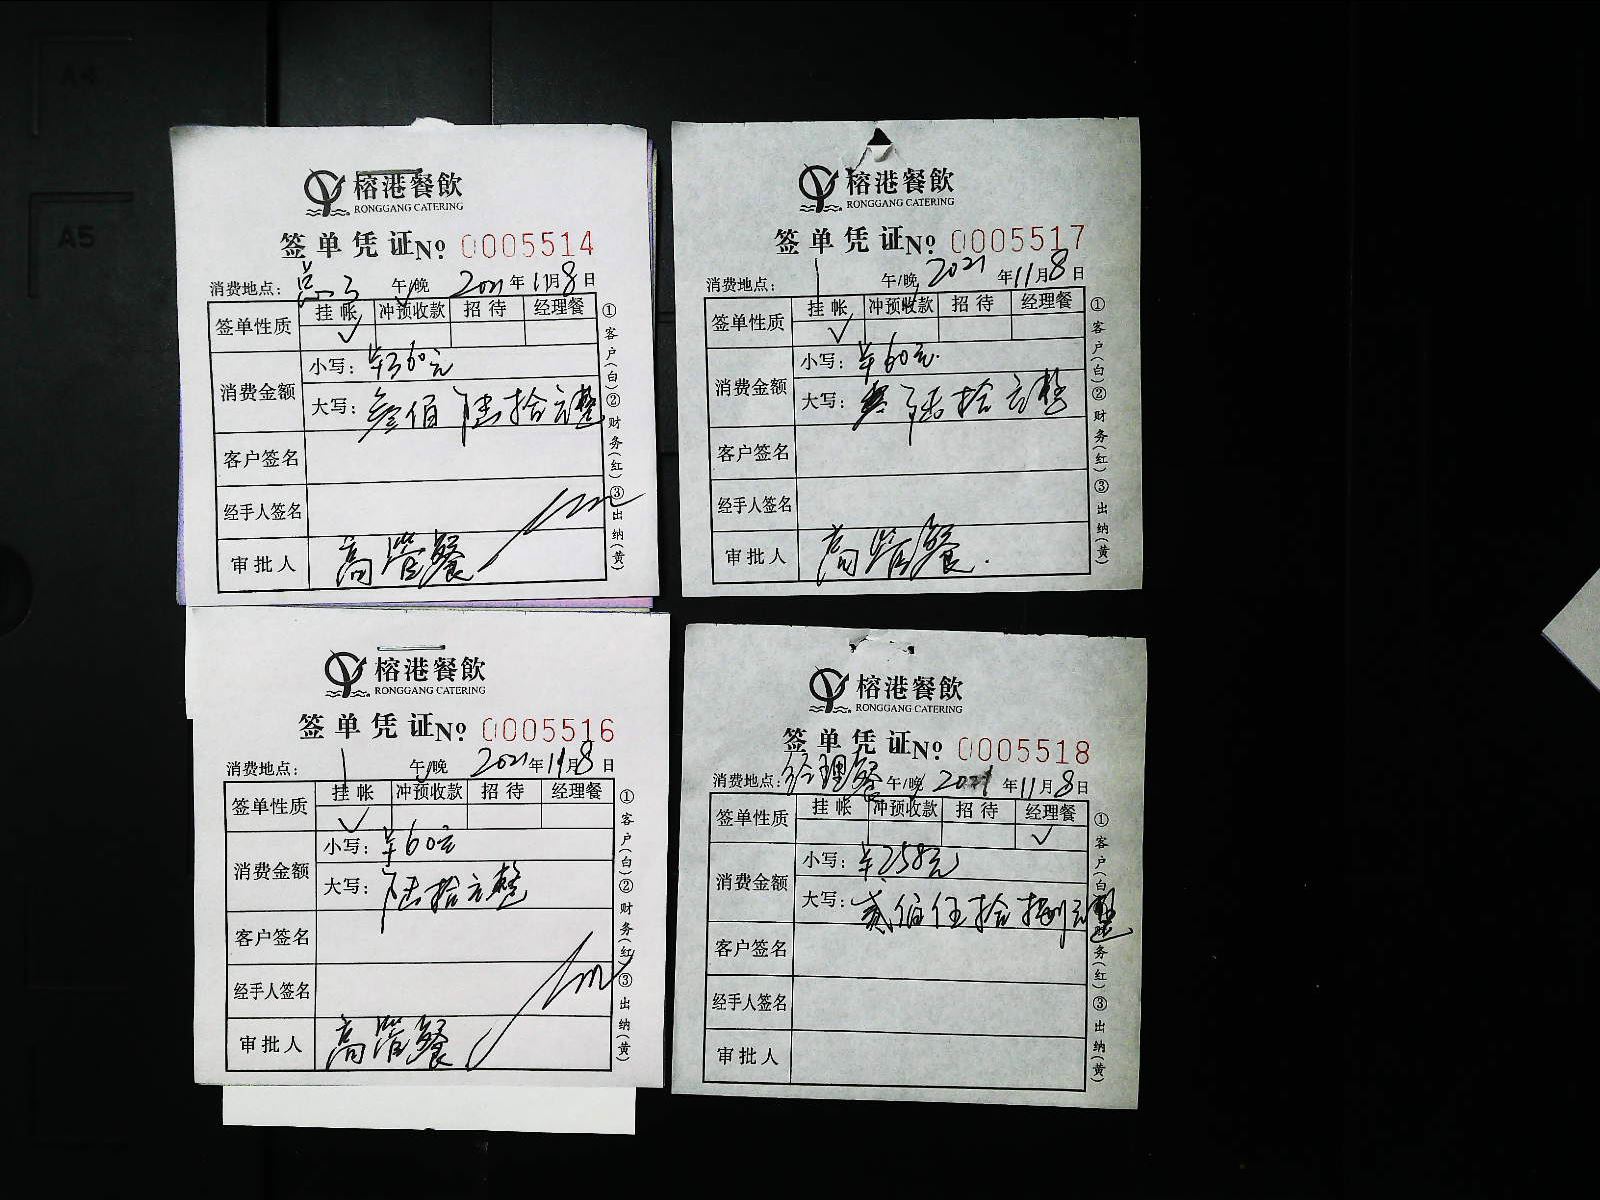 A4
A5
榕港餐飲
RONGGANG CATERING
签单凭证 № 0005514
消费地点: 午/晚 2021年11月8日
签单性质 挂帐 冲预收款 招待 经理餐
✓
消费金额 小写: ¥360元
大写: 叁佰陆拾元整
客户签名
经手人签名
审批人 高管餐
①客户(白)②财务(红)③出纳(黄)
榕港餐飲
RONGGANG CATERING
签单凭证 № 0005517
消费地点: 午/晚 2021年11月8日
签单性质 挂帐 冲预收款 招待 经理餐
✓
消费金额 小写: ¥60元
大写: 陆拾元整
客户签名
经手人签名
审批人 高管餐
①客户(白)②财务(红)③出纳(黄)
榕港餐飲
RONGGANG CATERING
签单凭证 № 0005516
消费地点: 午/晚 2021年11月8日
签单性质 挂帐 冲预收款 招待 经理餐
✓
消费金额 小写: ¥60元
大写: 陆拾元整
客户签名
经手人签名
审批人 高管餐
①客户(白)②财务(红)③出纳(黄)
榕港餐飲
RONGGANG CATERING
签单凭证 № 0005518
消费地点: 经理餐 午/晚 2021年11月8日
签单性质 挂帐 冲预收款 招待 经理餐
✓
消费金额 小写: ¥258元
大写: 贰佰伍拾捌元整
客户签名
经手人签名
审批人
①客户(白)②财务(红)③出纳(黄)